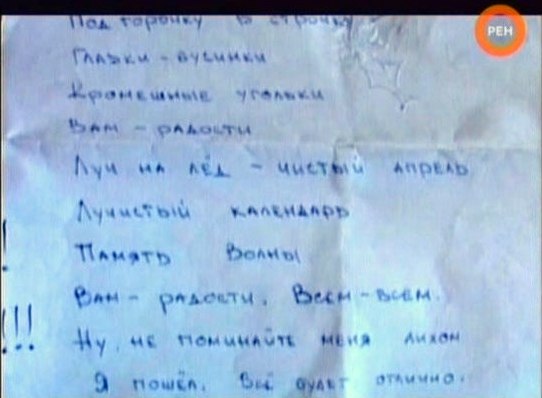 Под горочку в строчку
Глазки - бусинки
Кромешные угольки
Вам - радости
Луч на лёд - чистый апрель
Лучистый календарь
Память Волны
Вам - радости. Всем - всем.
Ну, не поминайте меня лихом
Я пошёл. Всё будет отлично.
!
!!!
РЕН